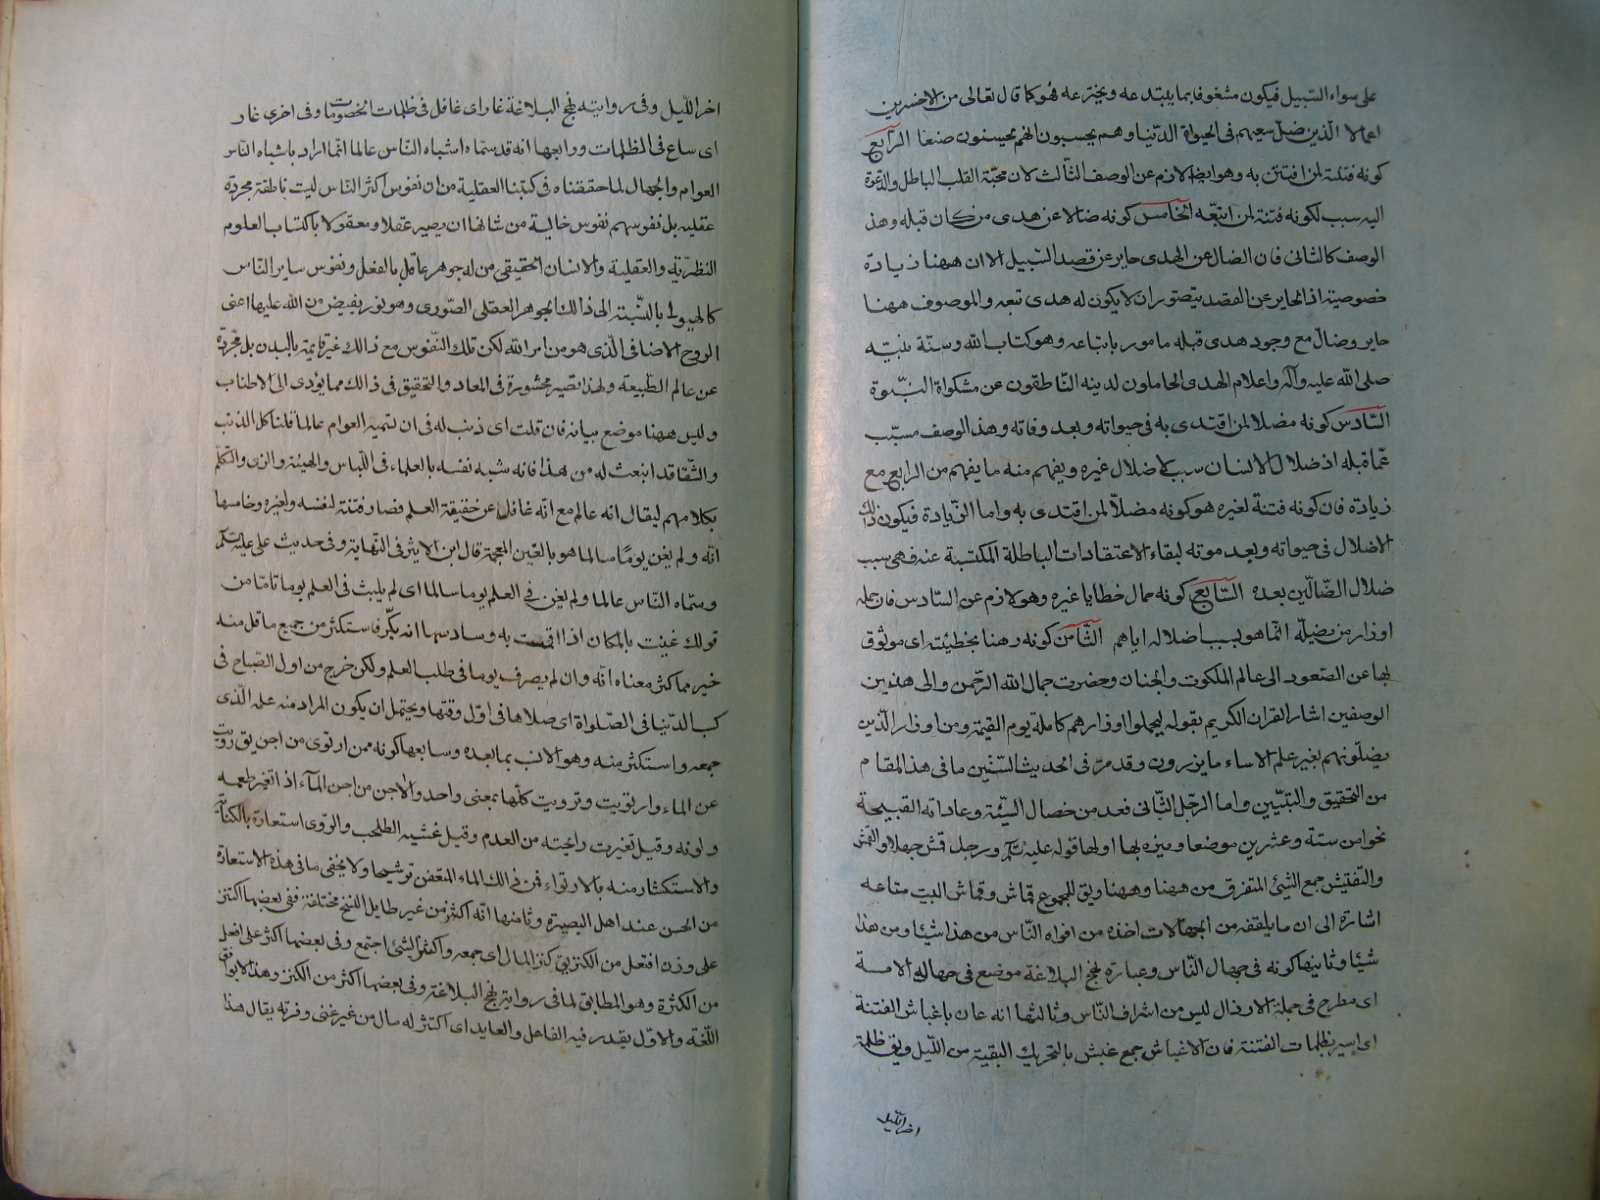 على سواء السبيل فيكون مشغوفا بما يبتدعه ويخترعه هو كما قال تعالى من الاخسرين
اعمالا الذين ضل سعيهم فى الحيوة الدنيا وهم يحسبون انهم يحسنون صنعا الرابع
كونه فتنة لمن افتتن به وهو ايضا لازم عن الوصف الثالث لان محبة القلب الباطل والدعوة
اليه سبب لكونه فتنة لمن اتبعه الخامس كونه ضالا عن هدى من كان قبله وهذ
الوصف كالثانى فان الضال عن الهدى حاير عن قصد السبيل الا ان ههنا زيادة
خصوصية اذ الحاير عن القصد يتصور ان لا يكون له هدى تبعه والموصوف ههنا
حاير وضال مع وجود هدى قبله مامور باتباعه وهو كتاب الله وسنة نبيه
صلى الله عليه وآله واعلام الهدى الحاملون لدينه الناطقون عن مشكواة النبوة
السادس كونه مضلا لمن اقتدى به فى حيواته وبعد وفاته وهذ الوصف مسبب
عما قبله اذ ضلال الانسان سبب لاضلال غيره ويفهم منه ما يفهم من الرابع مع
زيادة فان كونه فتنة لغيره هو كونه مضلا لمن اقتدى به واما الزيادة فيكون ذالك
الاضلال فى حيواته وبعد موته لبقاء الاعتقادات الباطلة المكتسبة عنه فهى سبب
ضلال الضالين بعده السابع كونه حمال خطايا غيره وهو لازم عن السادس فان حمله
اوزار من يضله انما هو بسبب اضلاله اياهم الثامن كونه رهنا بخطيئته اى موثوق
بها عن الصعود الى عالم الملكوت والجنان وحضرت جمال الله الرحمن والى هذين
الوصفين اشار القران الكريم بقوله ليحملوا اوزارهم كاملة يوم القيمة ومن اوزار الذين
يضلونهم بغير علم الا ساء ما يزرون وقد مر فى احديث السنين ما فى هذ المقام
من التحقيق والتبيين واما الرجل الثانى فعد من خصال السيئة وعاداته القبيحة
نحوا من ستة وعشرين موضعا وميزه بها اولها قوله عليه ورجل قمش جهلا والقمش
والتفتيش جمع الشئ المتفرق من ههنا وههنا ويق للمجموع قماش وقماش البيت متاعه
اشارة الى ان ما يلقفه من الجهالات اخذه من افواه الناس من هذا شيئا ومن هذا
شيئا وثانيها كونه فى جهال الناس وعبارة نهج البلاغة موضع فى جهال الامة
اى مطرح فى جملة الارذال ليس من اشراف الناس وثالثها انه عان باغباش الفتنة
اى اسير بظلمات الفتنة فان الاغباش جمع غبش بالتحريك البقية من الليل ويق ظلمة
اخر الليل
اخر الليل وفى رواية نهج البلاغة غار اى غافل فى ظلمات الخصومات وفى اخرى غار
اى ساع فى الظلمات ورابعها انه قد سماه اشباه الناس عالما انما اراد باشباه الناس
العوام والجهال لما حققناه فى كتبنا العقلية من ان نفوس اكثر الناس ليت ناطقة مجردة
عقلية بل نفوسهم نفوس خالية من شانها ان يصير عقلا ومعقولا باكتساب العلوم
النظرية والعقلية والانسان الحقيقى من له جوهر عاقل بالفعل ونفوس ساير الناس
كالهيولى بالنسبة الى ذالك الجوهر العقلى الصورى وهو نور يفيض من الله عليها اعنى
الروح الاضافى الذى هو من امر الله لكن تلك النفوس مع ذالك غير قايمة بالبدن بل مجردة
عن عالم الطبيعة ولهذا تصير محشورة فى المعاد والتحقيق فى ذالك مما يؤدى الى الاطناب
وليس ههنا موضع بيانه فان قلت اى ذنب له فى ان تسميه العوام عالما قلنا كل الذنب
والشقا قد ابنعث له من هذا فانه شبه نفسه بالعلماء فى اللباس والهيئة والزى والتكلم
بكلامهم ليقال انه عالم مع انه غافل عن حقيقة العلم فصار فتنة لنفسه ولغيره وخامسها
انه ولم يغن يوما سالما هو بالغين المعجمة قال ابن الاثير فى النهاية وفى حديث على عليه
وسماه الناس عالما ولم يغن فى العلم يوما سالما اى لم يلبث فى العلم يوما تاما من
قولك غنيت بالمكان اذا اقمت به وسادسها انه بكر فاستكثر من جميع ما قل منه
خير مما كثر معناه انه وان لم يصرف يوما فى طلب العلم ولكن خرج من اول الصباح فى
كسب الدنيا فى الصلواة اى صلاها فى اول وقتها ويحتمل ان يكون المراد منه علمه الذى
جمعه واستكثر منه وهو الانسب بما بعده وسابعها كونه ممن ارتوى من اجن يق رويت
عن الماء وارتويت وترويت كلها بمعنى واحد والاجن من اجن المآء اذا تغير طعمه
ولونه وقيل تغيرت رايحته من العدم وقيل غشيه الطلحب والروى استعارة بالكناية
والاستكثار منه بالارتواء من ذالك الماء المتعفن ترشيحا ولا يخفى ما فى هذه الاستعارة
من الحسن عند اهل البصيرة وثامنها انه اكثر من غير طايل النسخ مختلفة ففى بعضها اكتنز
على وزن افتعل من الكنز يق كنز المال اى جمعه واكتنز الشئ اجتمع وفى بعضها اكثر على افعل
من الكثرة وهو المطابق لما فى رواية نهج البلاغة وفى بعضها اكثر من الكنز وهذا لا يوافق
اللغة والاول يقدر فيه الفاعل والعايد اى اكتنز له مال من غير غنى وفرته يقال هذا